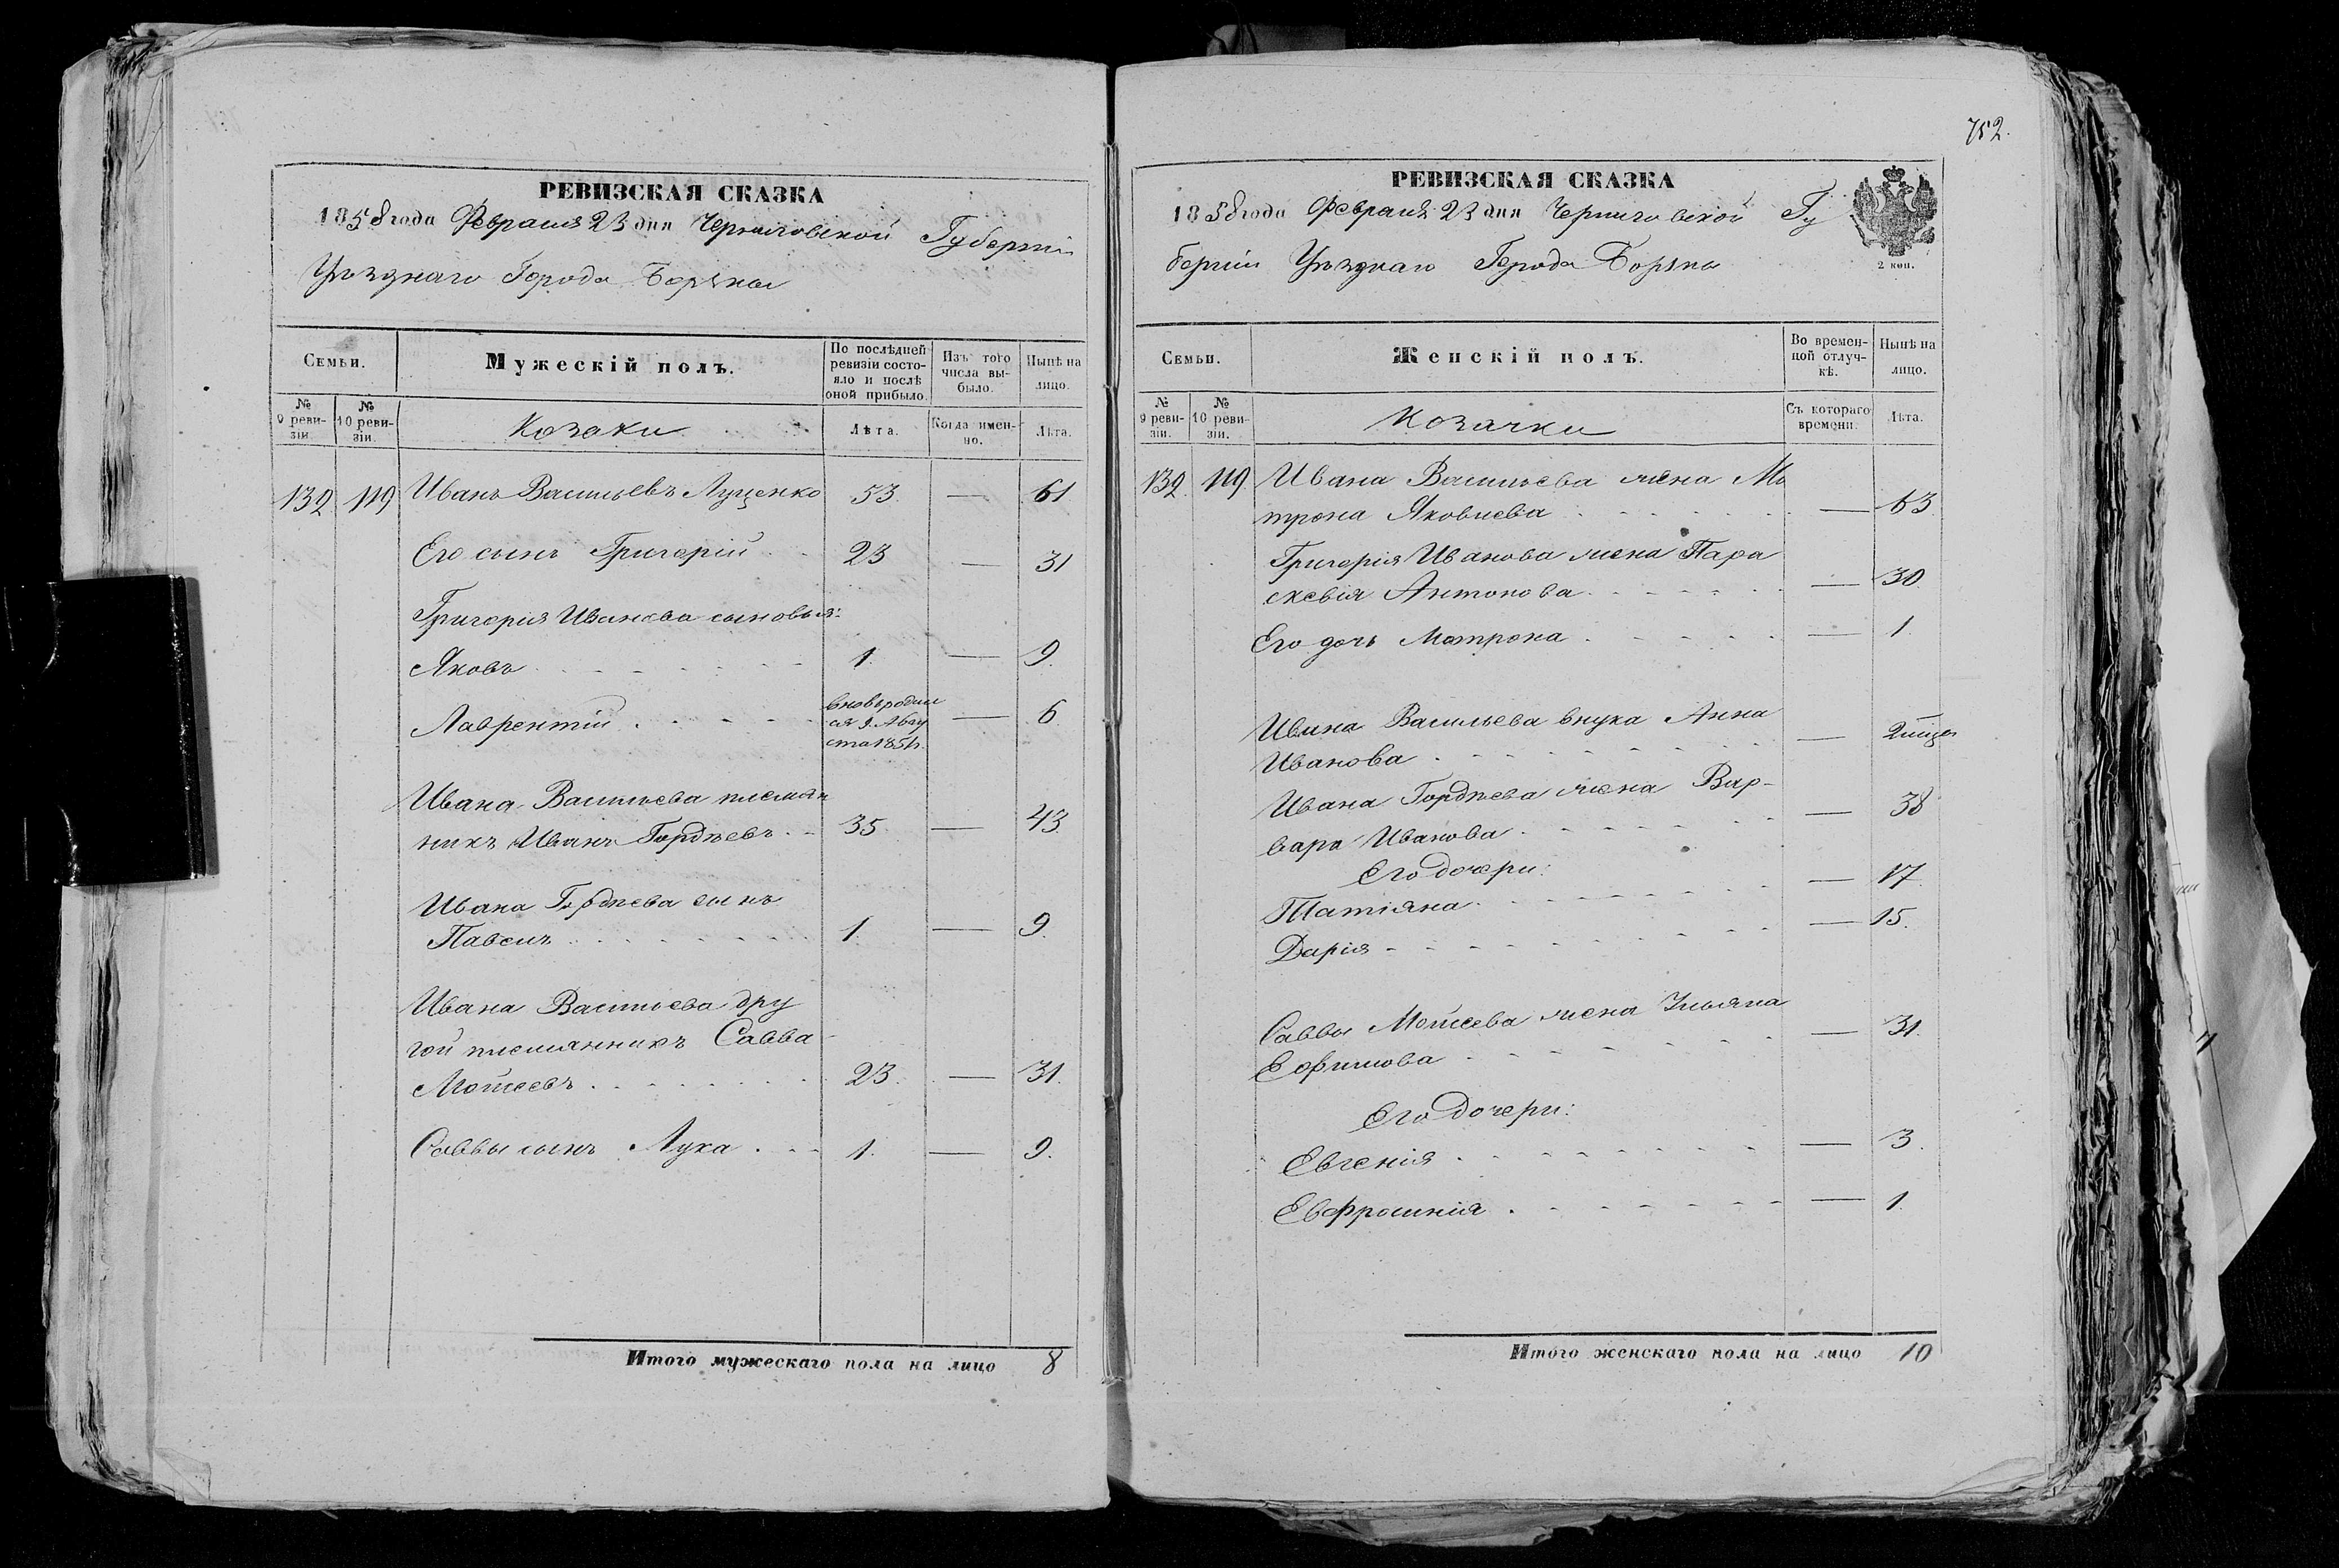 752.
РЕВИЗСКАЯ СКАЗКА
1858 года Февраля 23 дня Черниговской Губерніи
Уѣзднаго Города Борзны
Семьи.
Мужескій полъ.
По послѣдней ревизіи состояло и послѣ оной прибыло.
Изъ того числа выбыло.
Нынѣ на лицо.
№ 9 ревизіи.
№ 10 ревизіи.
Козаки
Лѣта.
Когда именно.
Лѣта.
132 119 Иванъ Васильевъ Луценко 53 — 61
Его сынъ Григорій 23 — 31
Григорія Иванова сыновья:
Яковъ 1. — 9.
Лаврентій вновь родил — 6
ся 9. Авгу
ста 1851.
Ивана Васильева племян
никъ Иванъ Гордѣевъ 35 — 43
Ивана Гордѣева сынъ
Павелъ 1. — 9.
Ивана Васильева дру
гой племянникъ Савва
Мойсеевъ 23. — 31.
Саввы сынъ Лука 1. — 9.
Итого мужескаго пола на лицо 8
РЕВИЗСКАЯ СКАЗКА
1858 года Февраля 23 дня Черниговской Гу
берніи Уѣзднаго Города Борзны
2 коп.
Семьи.
Женскій полъ.
Во временной отлучкѣ.
Нынѣ на лицо.
№ 9 ревизіи.
№ 10 ревизіи.
Козачки
Съ котораго времени.
Лѣта.
132. 119 Ивана Васильева жена Ма
трона Яковлева — 63.
Григорія Иванова жена Пара
скевія Антонова — 30.
Его дочь Матрона — 1.
Ивана Васильева внука Анна
Иванова —
Ивана Гордѣева жена Вар-
вара Иванова — 38
Его дочери:
Татіяна — 17.
Дарія — 15.
Саввы Мойсеева жена Ульяна
Ефимова — 31.
Его дочери:
Евгенія — 3.
Евфросинія — 1.
Итого женскаго пола на лицо 10